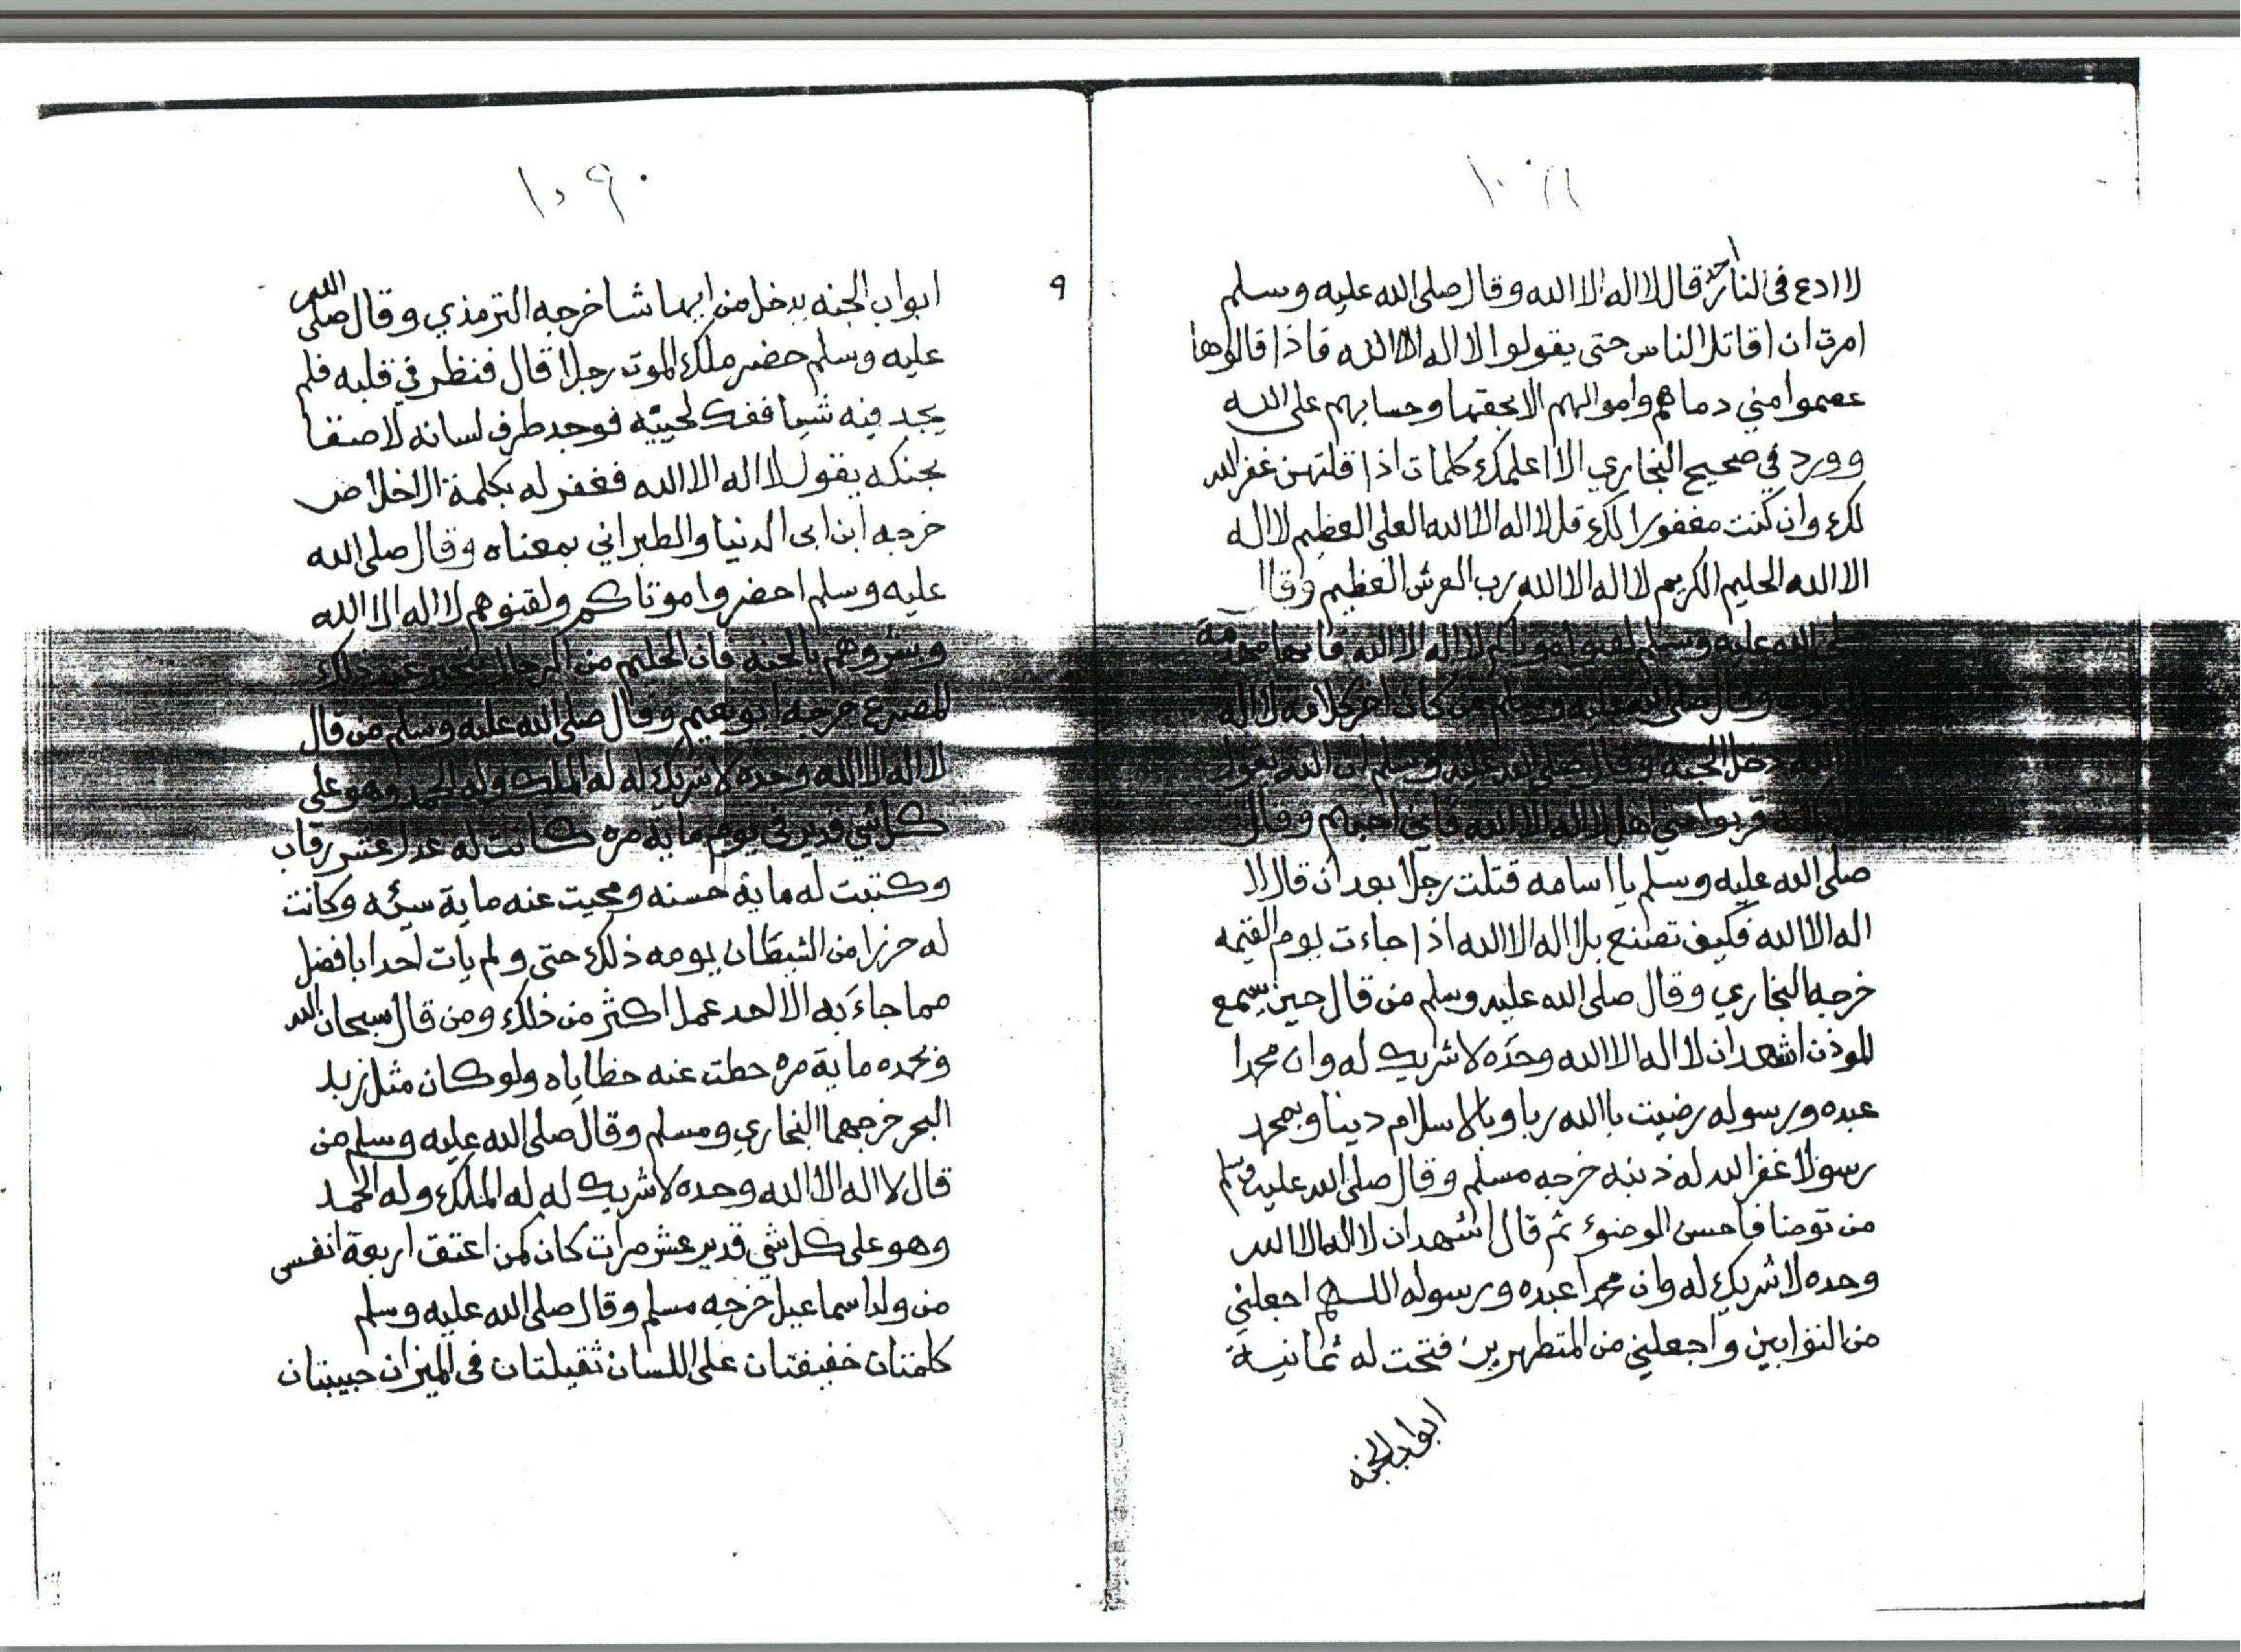 لا ادع في النار احد قال لا اله الا الله وقال صلى الله عليه وسلم
امرت ان اقاتل الناس حتى يقولوا لا اله الا الله فاذا قالوها
عصموا مني دماهم واموالهم الا بحقها وحسابهم على الله
وورد في صحيح البخاري الا اعلمك كلمات اذا قلتهن غفر الله
لك وان كنت مغفورا لك قل لا اله الا الله العلى العظيم لا اله
الا الله الحليم الكريم لا اله الا الله رب العرش العظيم وقال
صلى الله عليه وسلم لقنوا موتاكم لا اله الا الله فانها
وقال صلى الله عليه وسلم من كان اخر كلامه لا اله
الا الله دخل الجنه وقال صلى الله عليه وسلم ان الله يقول
قربوا مني اهل لا اله الا الله فاني احبهم وقال
صلى الله عليه وسلم يا اسامه قتلت رجلا بعد ان قال لا
اله الا الله فكيف تصنع بلا اله الا الله اذا جاءت يوم القيمه
خرجه البخاري وقال صلى الله عليه وسلم من قال حين يسمع
الموذن اشهد ان لا اله الا الله وحده لا شريك له وان محمدا
عبده ورسوله رضيت باالله ربا وبالاسلام دينا وبمحمد
رسولا غفر الله له ذنبه خرجه مسلم وقال صلى الله عليه وسلم
من توضا فاحسن الوضوء ثم قال اشهد ان لا اله الا الله
وحده لا شريك له وان محمدا عبده ورسوله اللهم اجعلني
من التوابين واجعلني من المتطهرين فتحت له ثمانية
ابواب الجنه
١٠٩٠
٩
ابواب الجنه يدخل من ايها شا خرجه الترمذي وقال صلى الله
عليه وسلم حضر ملك الموت رجلا قال فنظر في قلبه فلم
يجد فيه شيا ففك لحييه فوجد طرف لسانه لاصقا
بحنكه يقول لا اله الا الله فغفر له بكلمة الاخلاص
خرجه ابن ابى الدنيا والطبراني بمعناه وقال صلى الله
عليه وسلم احضروا موتاكم ولقنوهم لا اله الا الله
وبشروهم بالجنه فان الحليم من الرجال يتحير عند ذلك
المصرع خرجه ابو نعيم وقال صلى الله عليه وسلم من قال
لا اله الا الله وحده لا شريك له له الملك وله الحمد وهو على
كل شي قدير في يوم ماية مره كانت له عدل عشر رقاب
وكتبت له ماية حسنه ومحيت عنه ماية سيئه وكانت
له حرزا من الشيطان يومه ذلك حتى ولم يات احد بافضل
مما جاء به الا احد عمل اكثر من ذلك ومن قال سبحان الله
وبحمده ماية مره حطت عنه خطاياه ولو كان مثل زبد
البحر خرجهما البخاري ومسلم وقال صلى الله عليه وسلم من
قال لا اله الا الله وحده لا شريك له له الملك وله الحمد
وهو على كل شي قدير عشر مرات كان كمن اعتق اربعة انفس
من ولد اسماعيل خرجه مسلم وقال صلى الله عليه وسلم
كلمتان خفيفتان على اللسان ثقيلتان في الميزان حبيبتان